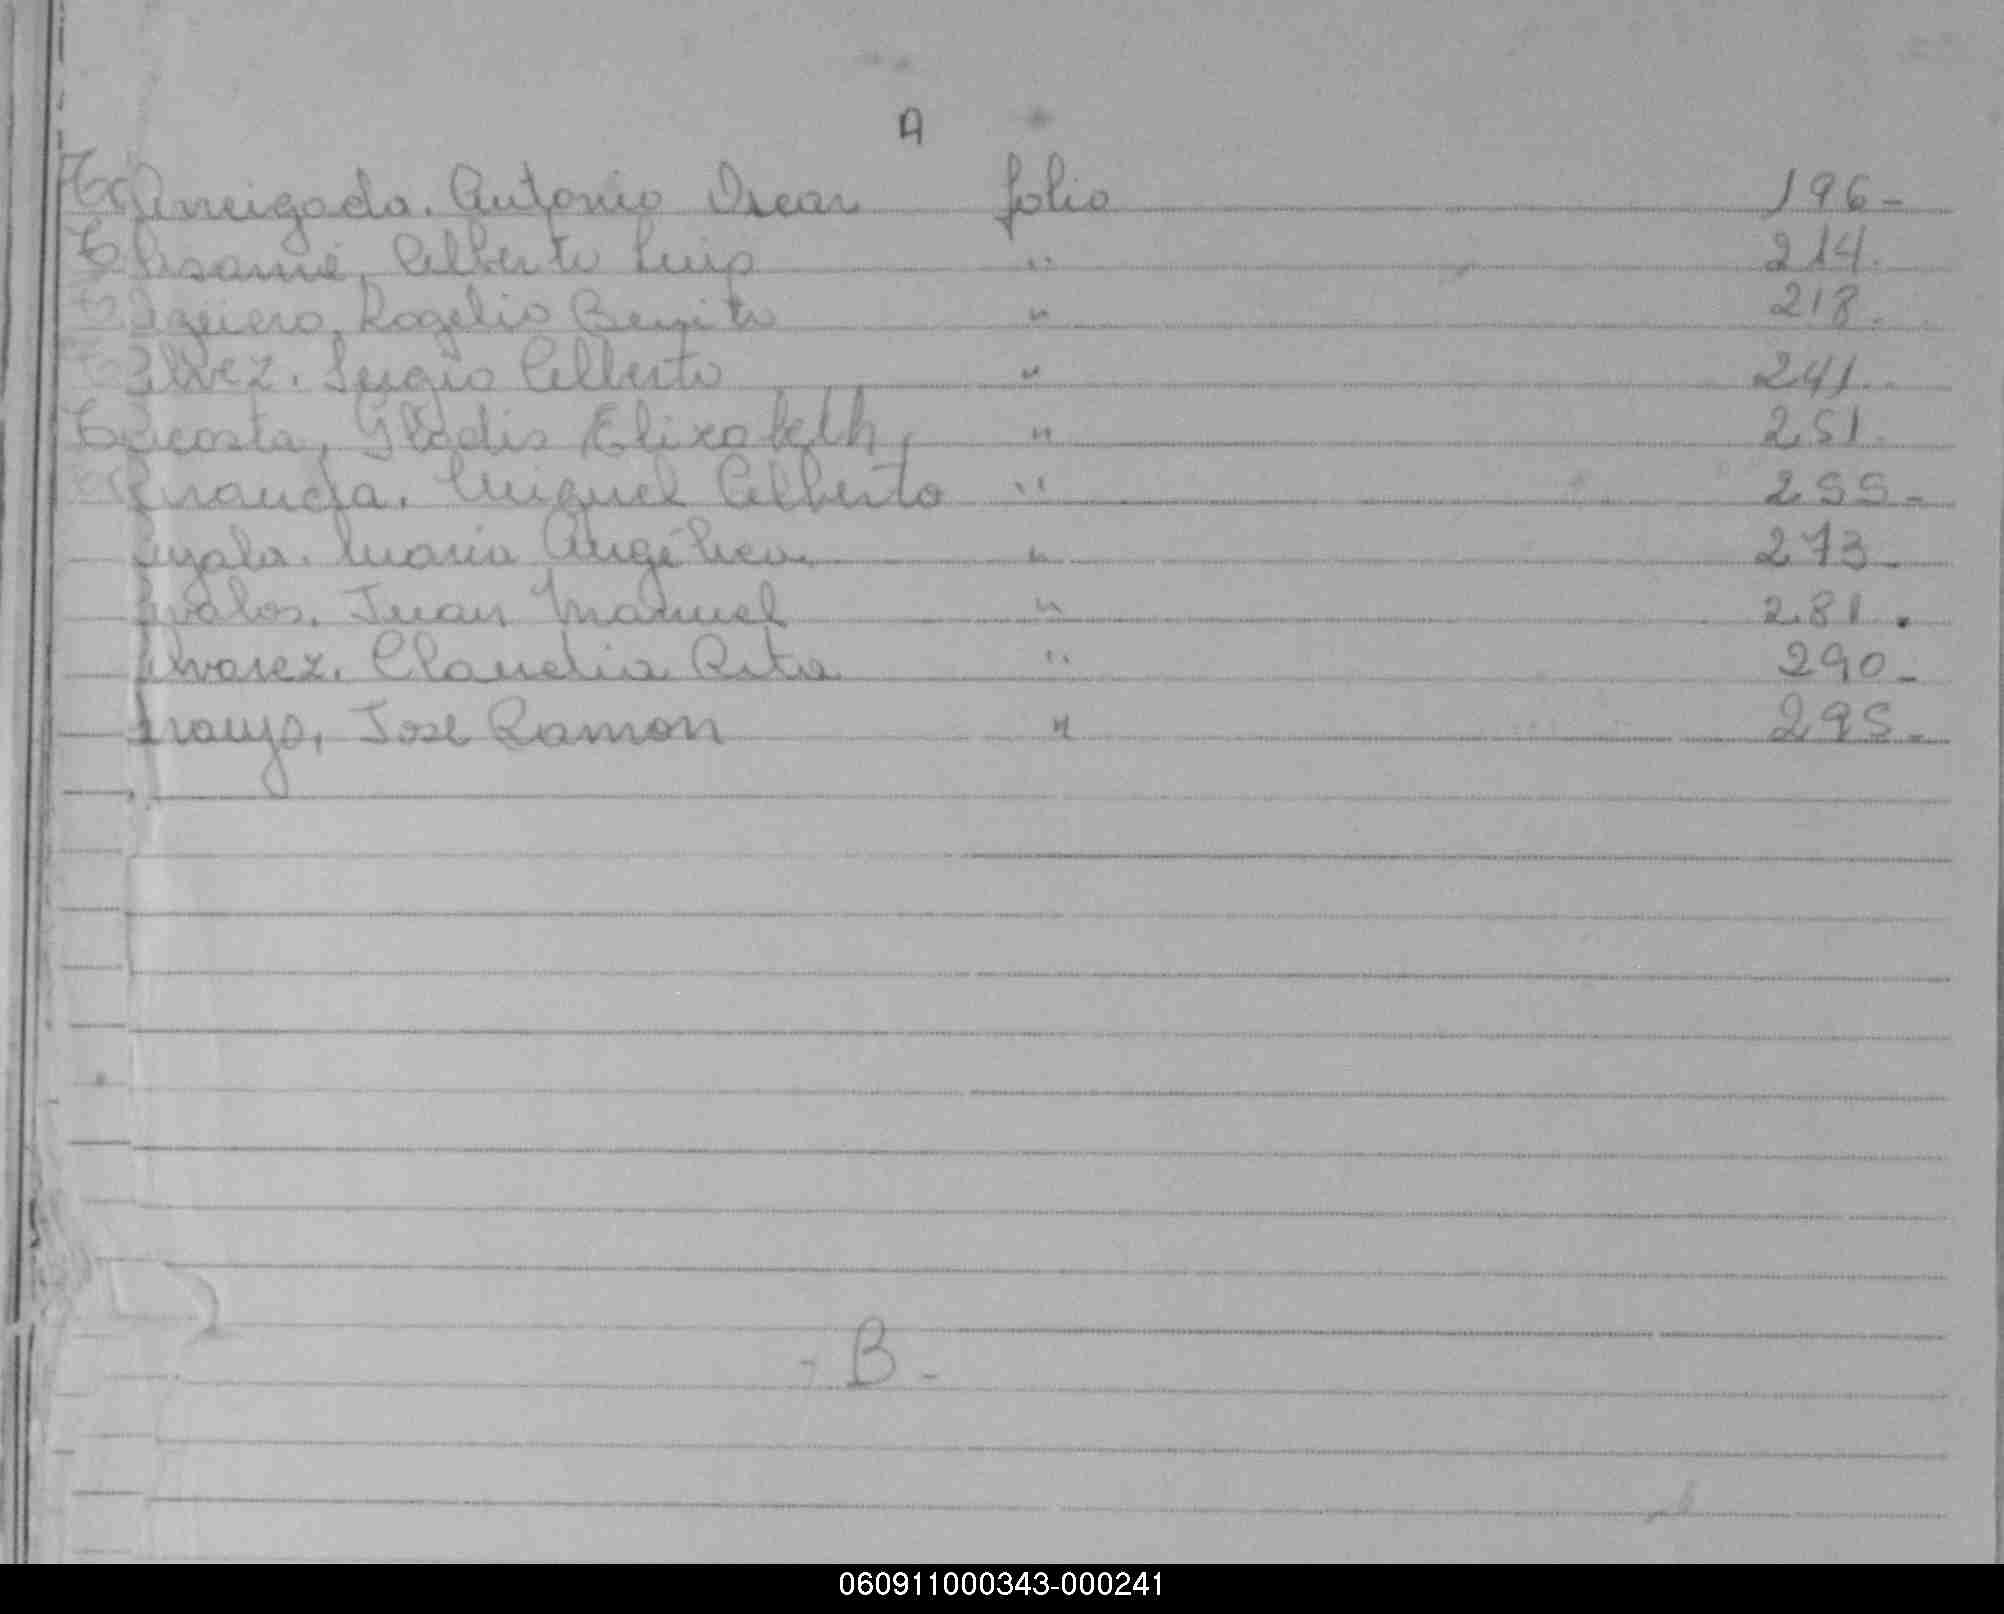 A
Arreigada. Antonio Oscar folio 196-
Alsamé, Alberto Luis " 214.
Agüero, Rogelio Benito " 218.
Alvez. Sergio Alberto " 241.
Acosta, Gladis Elizabeth, " 251.
Aranda. Miguel Alberto " 255-
Ayala. Maria Angélica. " 273-
Avalos. Juan Manuel " 281.
Alvarez. Claudia Rita " 290-
Araujo, Jose Ramon " 295-
- B -
060911000343-000241